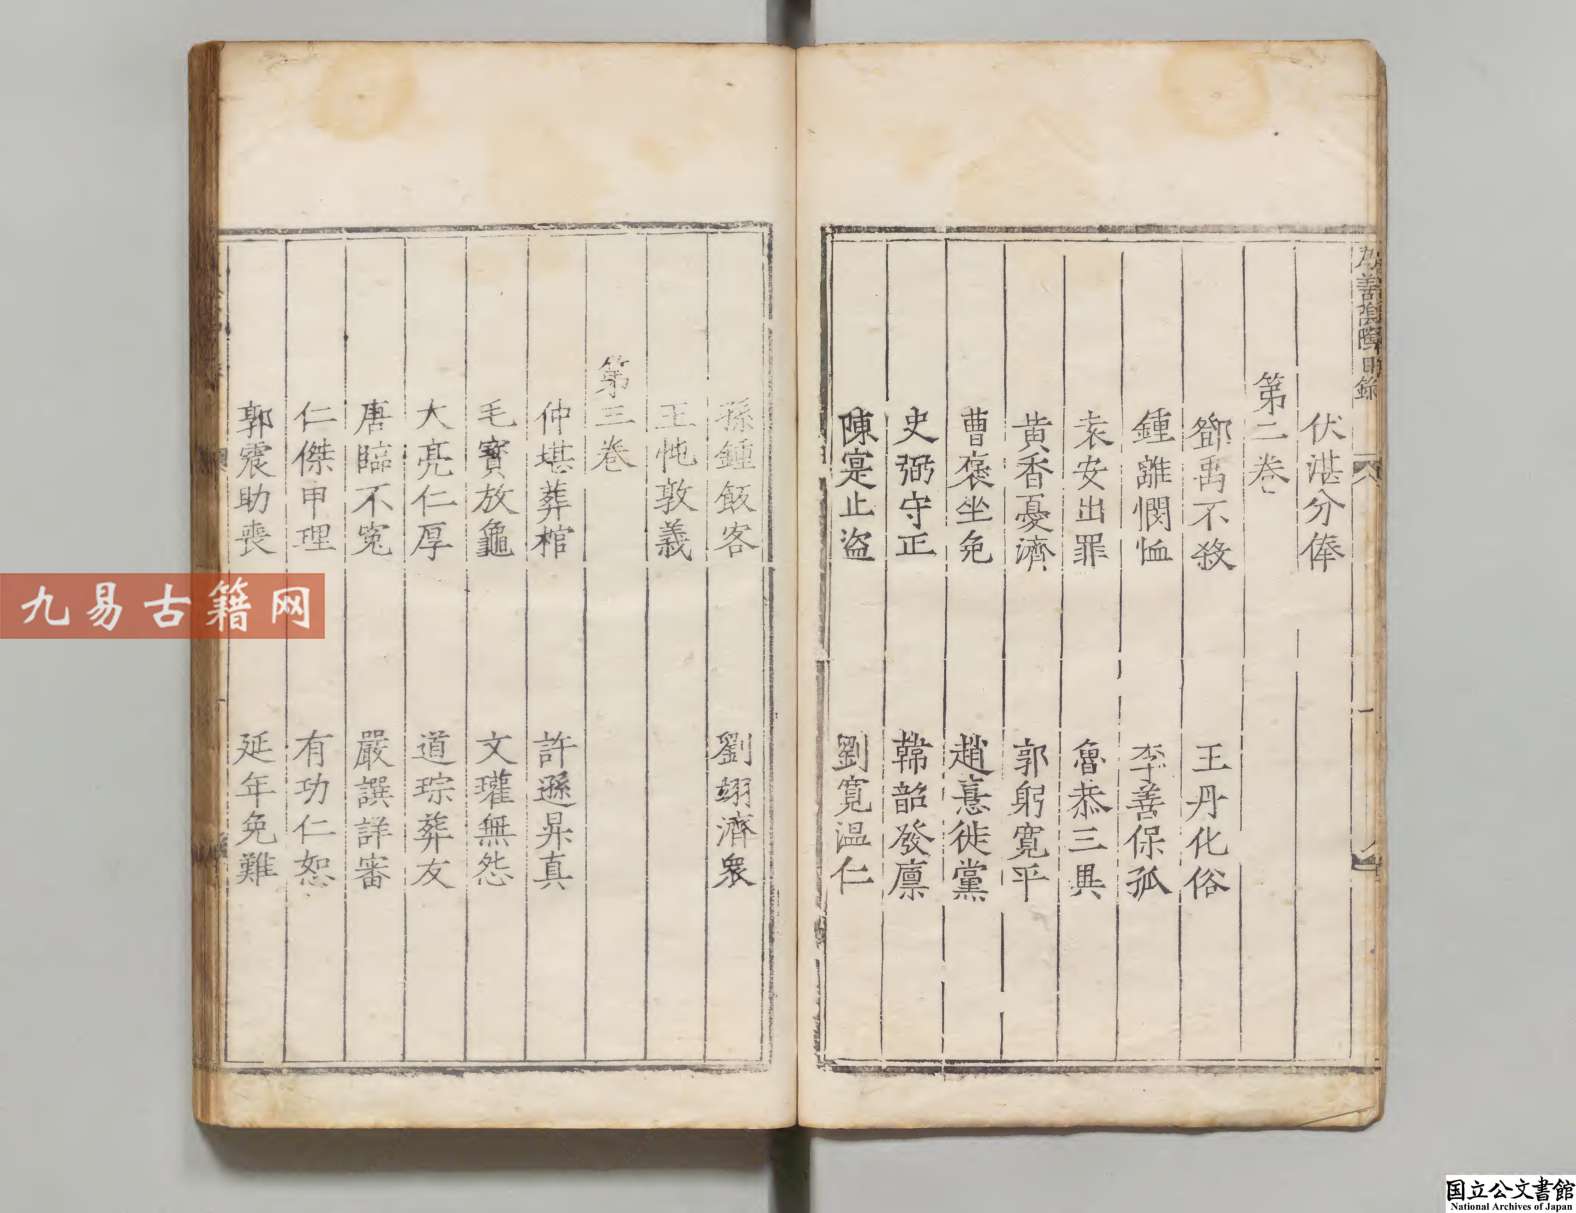 為善陰隲目錄
伏湛分俸
第二卷
鄧禹不殺 王丹化俗
鍾離憫恤 李善保孤
袁安出罪 魯恭三異
黄香憂濟 郭躬寛平
曹褒坐免 趙憙徙黨
史弼守正 韓韶發廪
陳寔止盗 劉寛温仁
孫鍾飯客 劉翊濟衆
王忳敦義
第三卷
仲堪葬棺 許遜昇真
毛寳放龜 文瓘無怨
大亮仁厚 道琮葬友
唐臨不寃 嚴譔詳審
仁傑申理 有功仁恕
郭震助喪 延年免難
九易古籍网
国立公文書館
National Archives of Japan